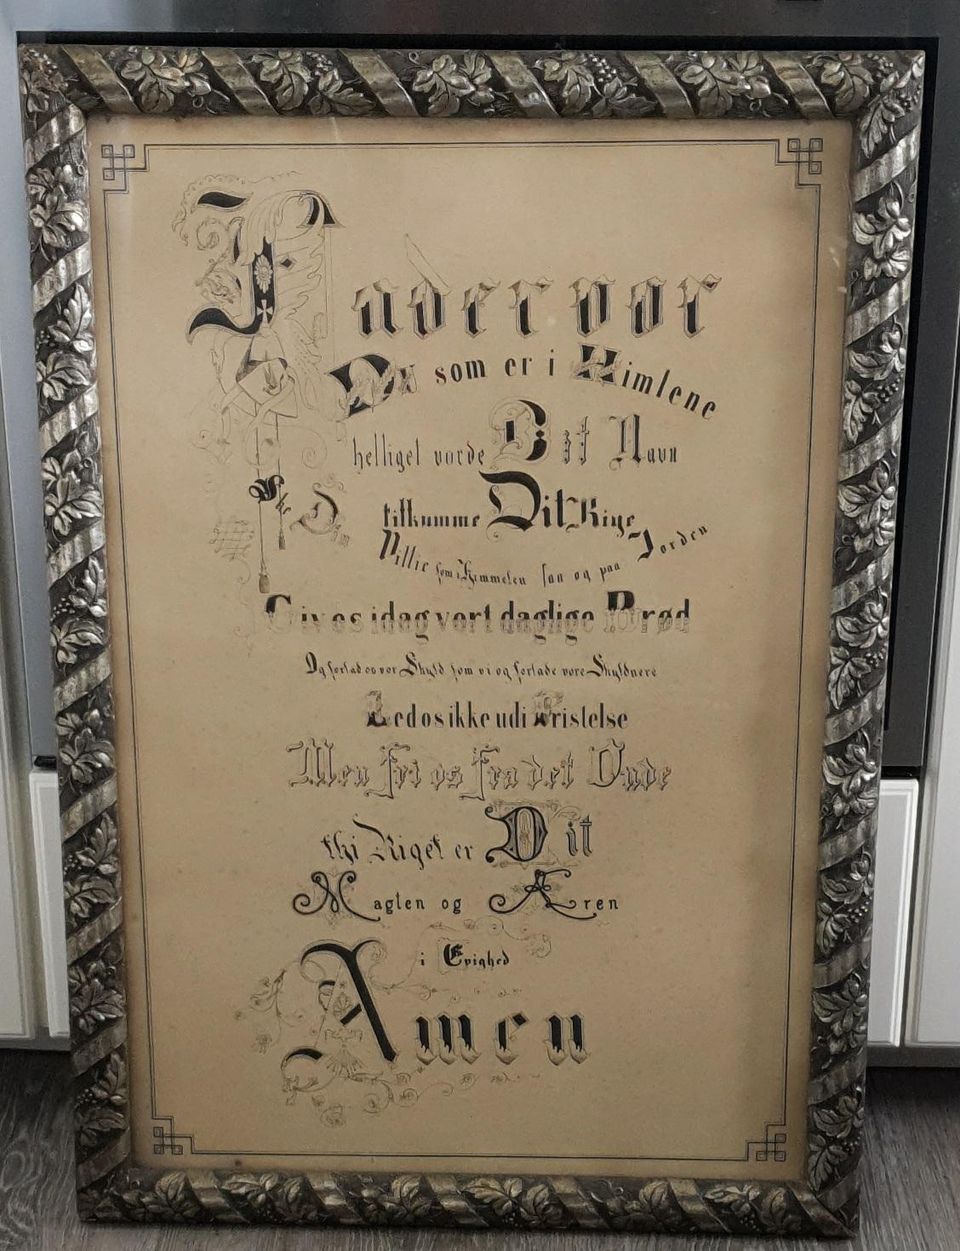 Fadervor
Du som er i Himlene
helliget vorde Dit Navn
tilkomme Dit Rige
Ske Din Villie som i Himmelen saa og paa Jorden
Giv os idag vort daglige Brød
Og forlad os vor Skyld som vi og forlade vore Skyldnere
Led os ikke udi Fristelse
Men fri os fra det Onde
thi Riget er Dit
Magten og Æren
i Evighed
Amen